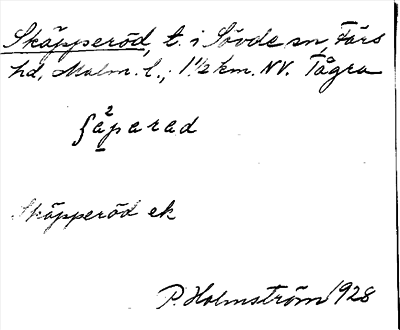 Skäpperöd, t. i Sövde sn, Färs
hd, Malm. l.; 1 1/2 km. NV. Tågra
ʃa²parad
Skäpperöd ek
P. Holmström 1928